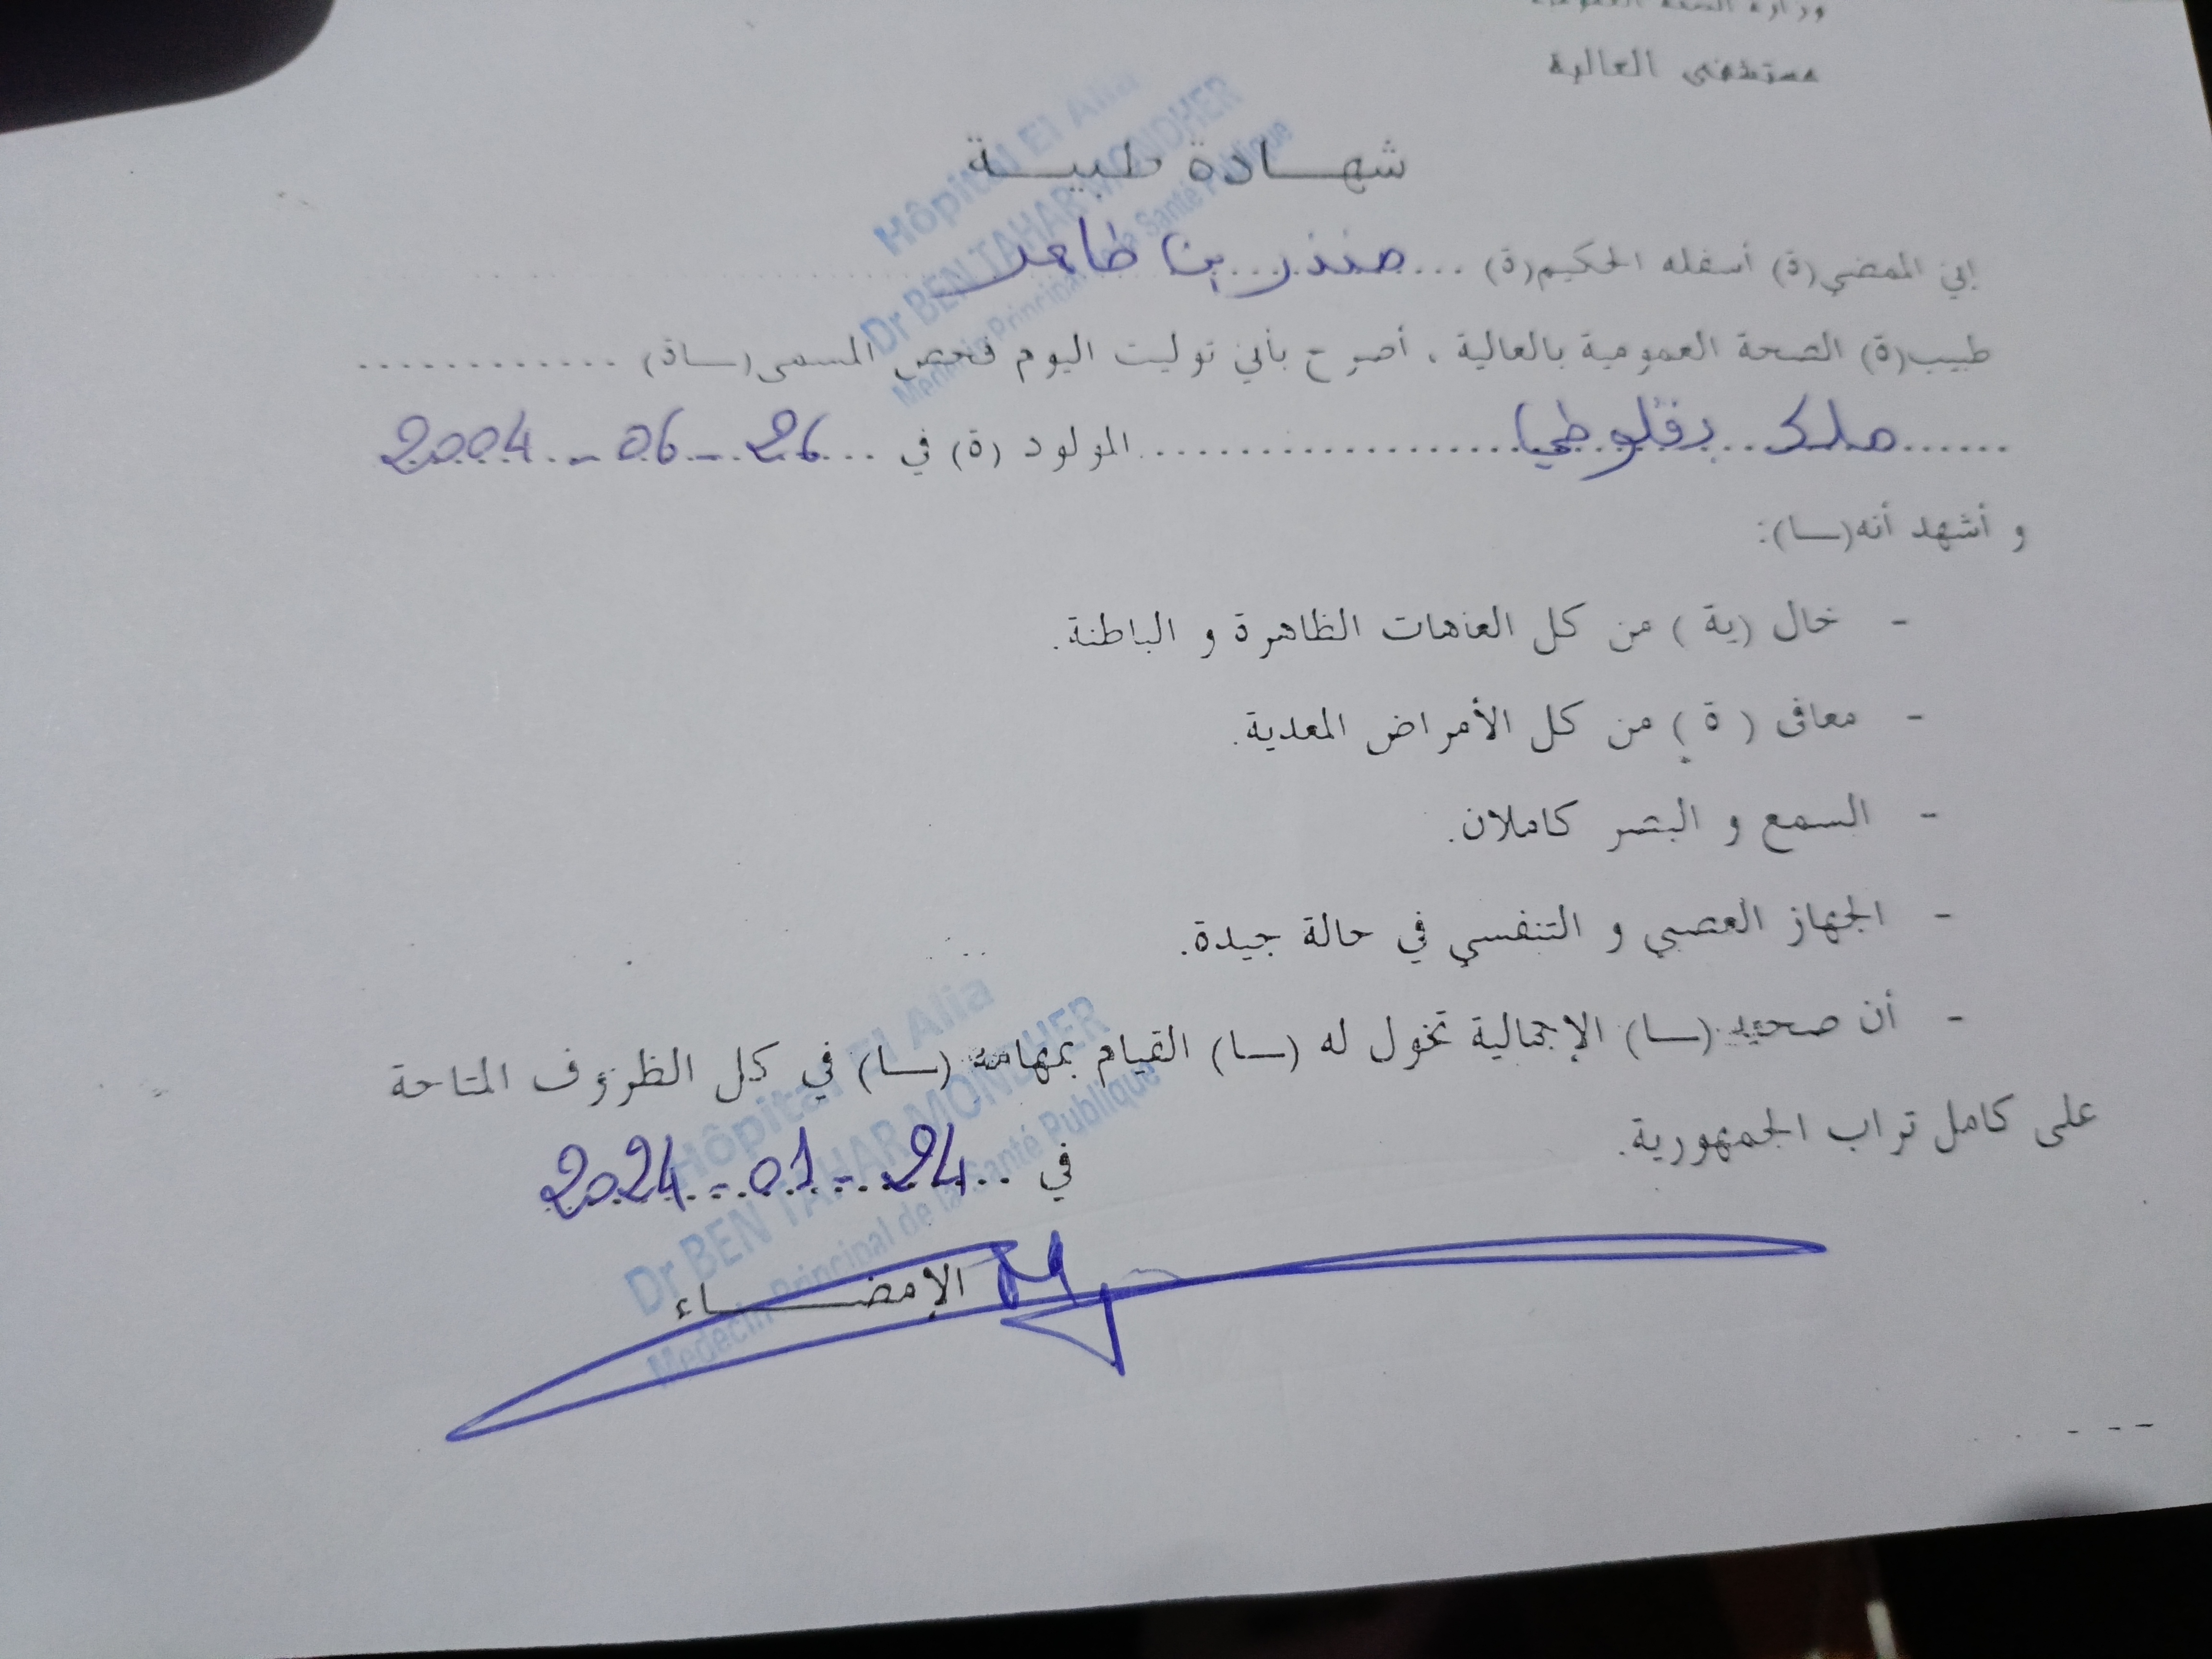 وزارة الصحة العمومية
مستشفى العالية
شهــادة طبيــة
إني الممضي(ة) أسفله الحكيم(ة) ... منذر بن طاهر
طبيب(ة) الصحة العمومية بالعالية ، أصرح بأني توليت اليوم فحص المسمى(ـاة) .............
...... ملك ........................ المولود (ة) في ... 26 - 06 - 2004
و أشهد أنه(ـا):
- خال (ية ) من كل العاهات الظاهرة و الباطنة.
- معافى ( ة ) من كل الأمراض المعدية.
- السمع و البصر كاملان.
- الجهاز العصبي و التنفسي في حالة جيدة.
- أن صحته (ـا) الإجمالية تخول له (ـا) القيام بمهامه (ـا) في كل الظروف المتاحة
على كامل تراب الجمهورية.
في .. 24 - 01 - 2024
الإمضــــاء
Hôpital El Alia
Dr BEN TAHAR MONDHER
Médecin Principal de la Santé Publique
Hôpital El Alia
Dr BEN TAHAR MONDHER
Médecin Principal de la Santé Publique